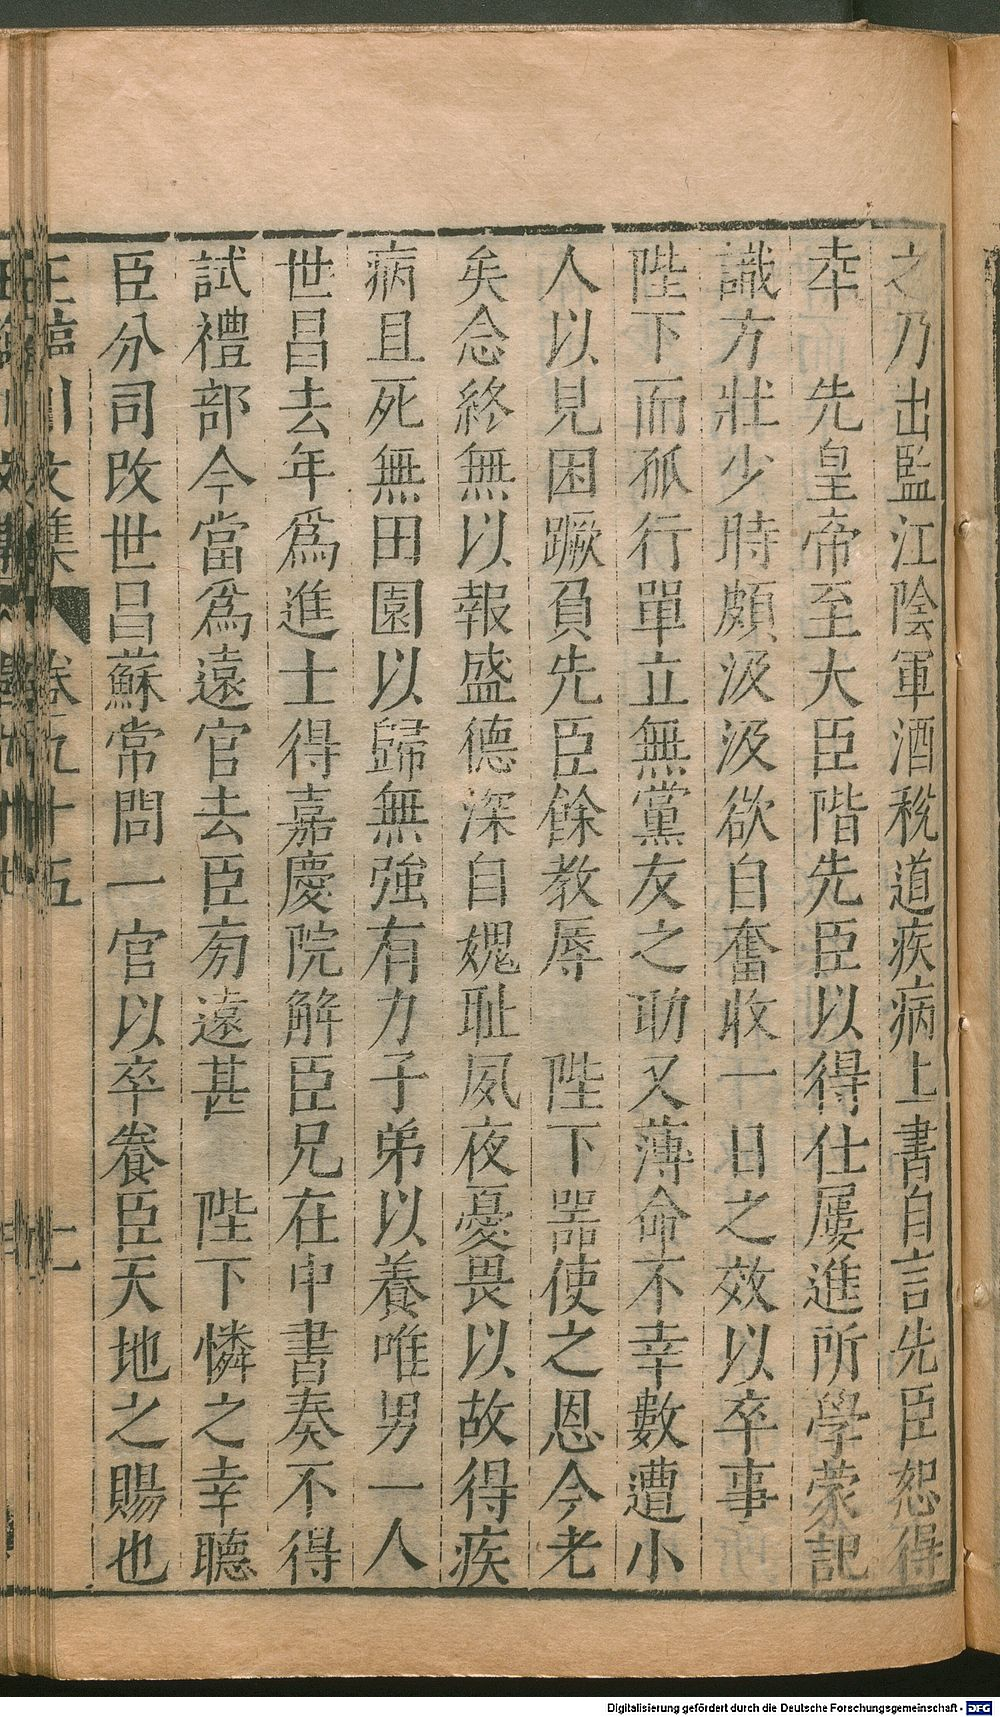 之乃出監江陰軍酒稅道疾病上書自言先臣恕得
幸　先皇帝至大臣階先臣以得仕屢進所學蒙記
識方壯少時頗汲汲欲自奮收一日之效以卒事
陛下而孤行單立無黨友之助又薄命不幸數遭小
人以見困蹶負先臣餘教辱　陛下器使之恩今老
矣念終無以報盛德深自媿耻夙夜憂畏以故得疾
病且死無田園以歸無強有力子弟以養唯男一人
世昌去年爲進士得嘉慶院解臣兄在中書奏不得
試禮部今當爲遠官去臣旁遠甚　陛下憐之幸聽
臣分司改世昌蘇常問一官以卒養臣天地之賜也
王臨川文集　卷九十五
Digitalisierung gefördert durch die Deutsche Forschungsgemeinschaft - DFG